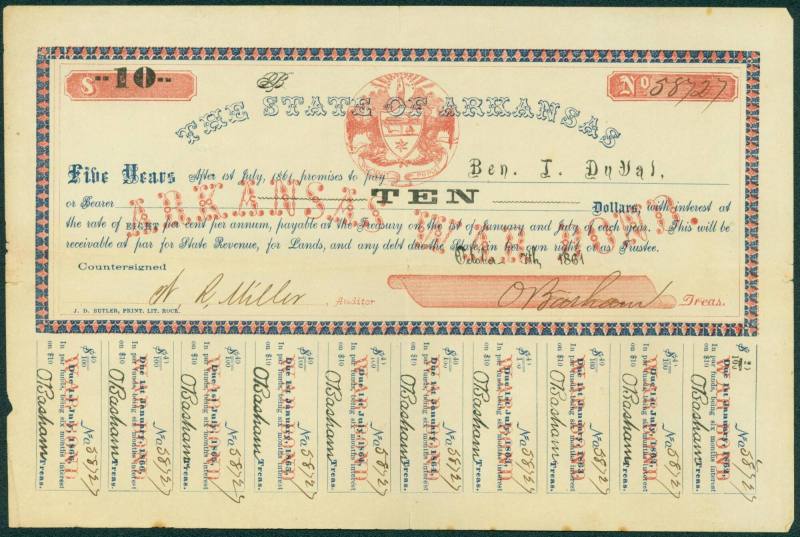 $ --10--
No 58727
THE STATE OF ARKANSAS
Five Years After 1st July, 1861, promises to pay Ben. T. DuVal,
or Bearer TEN Dollars, with interest at
the rate of EIGHT per cent per annum, payable at the Treasury on the 1st of January and July of each year. This will be
receivable at par for State Revenue, for Lands, and any debt due the State, in her own right, or as Trustee.
ARKANSAS WAR BOND.
October 7th, 1861
Countersigned
W. R. Miller Auditor O Basham Treas.
J. D. BUTLER, PRINT. LIT. ROCK.
$ 40/100 No 58727
WAR BOND
Due 1st July, 1866,
In par funds, being six months interest
on $10 O Basham Treas.
$ 41/100 No 58727
WAR BOND
Due 1st January, 1866,
In par funds, being six months interest
on $10 O Basham Treas.
$ 40/100 No 58727
WAR BOND
Due 1st July, 1865,
In par funds, being six months interest
on $10 O Basham Treas.
$ 40/100 No 58727
WAR BOND
Due 1st January, 1865,
In par funds, being six months interest
on $10 O Basham Treas.
$ 40/100 No 58727
WAR BOND
Due 1st July, 1864,
In par funds, being six months interest
on $10 O Basham Treas.
$ 41/100 No 58727
WAR BOND
Due 1st January, 1864,
In par funds, being six months interest
on $10 O Basham Treas.
$ 40/100 No 58727
WAR BOND
Due 1st July, 1863,
In par funds, being six months interest
on $10 O Basham Treas.
$ 41/100 No 58727
WAR BOND
Due 1st January, 1863,
In par funds, being six months interest
on $10 O Basham Treas.
$ 41/100 No 58727
WAR BOND
Due 1st July, 1862,
In par funds, being six months interest
on $10 O Basham Treas.
$ /100 No 58727
WAR BOND
Due 1st January, 1862,
In par funds, being six months interest
on $10 O Basham Treas.